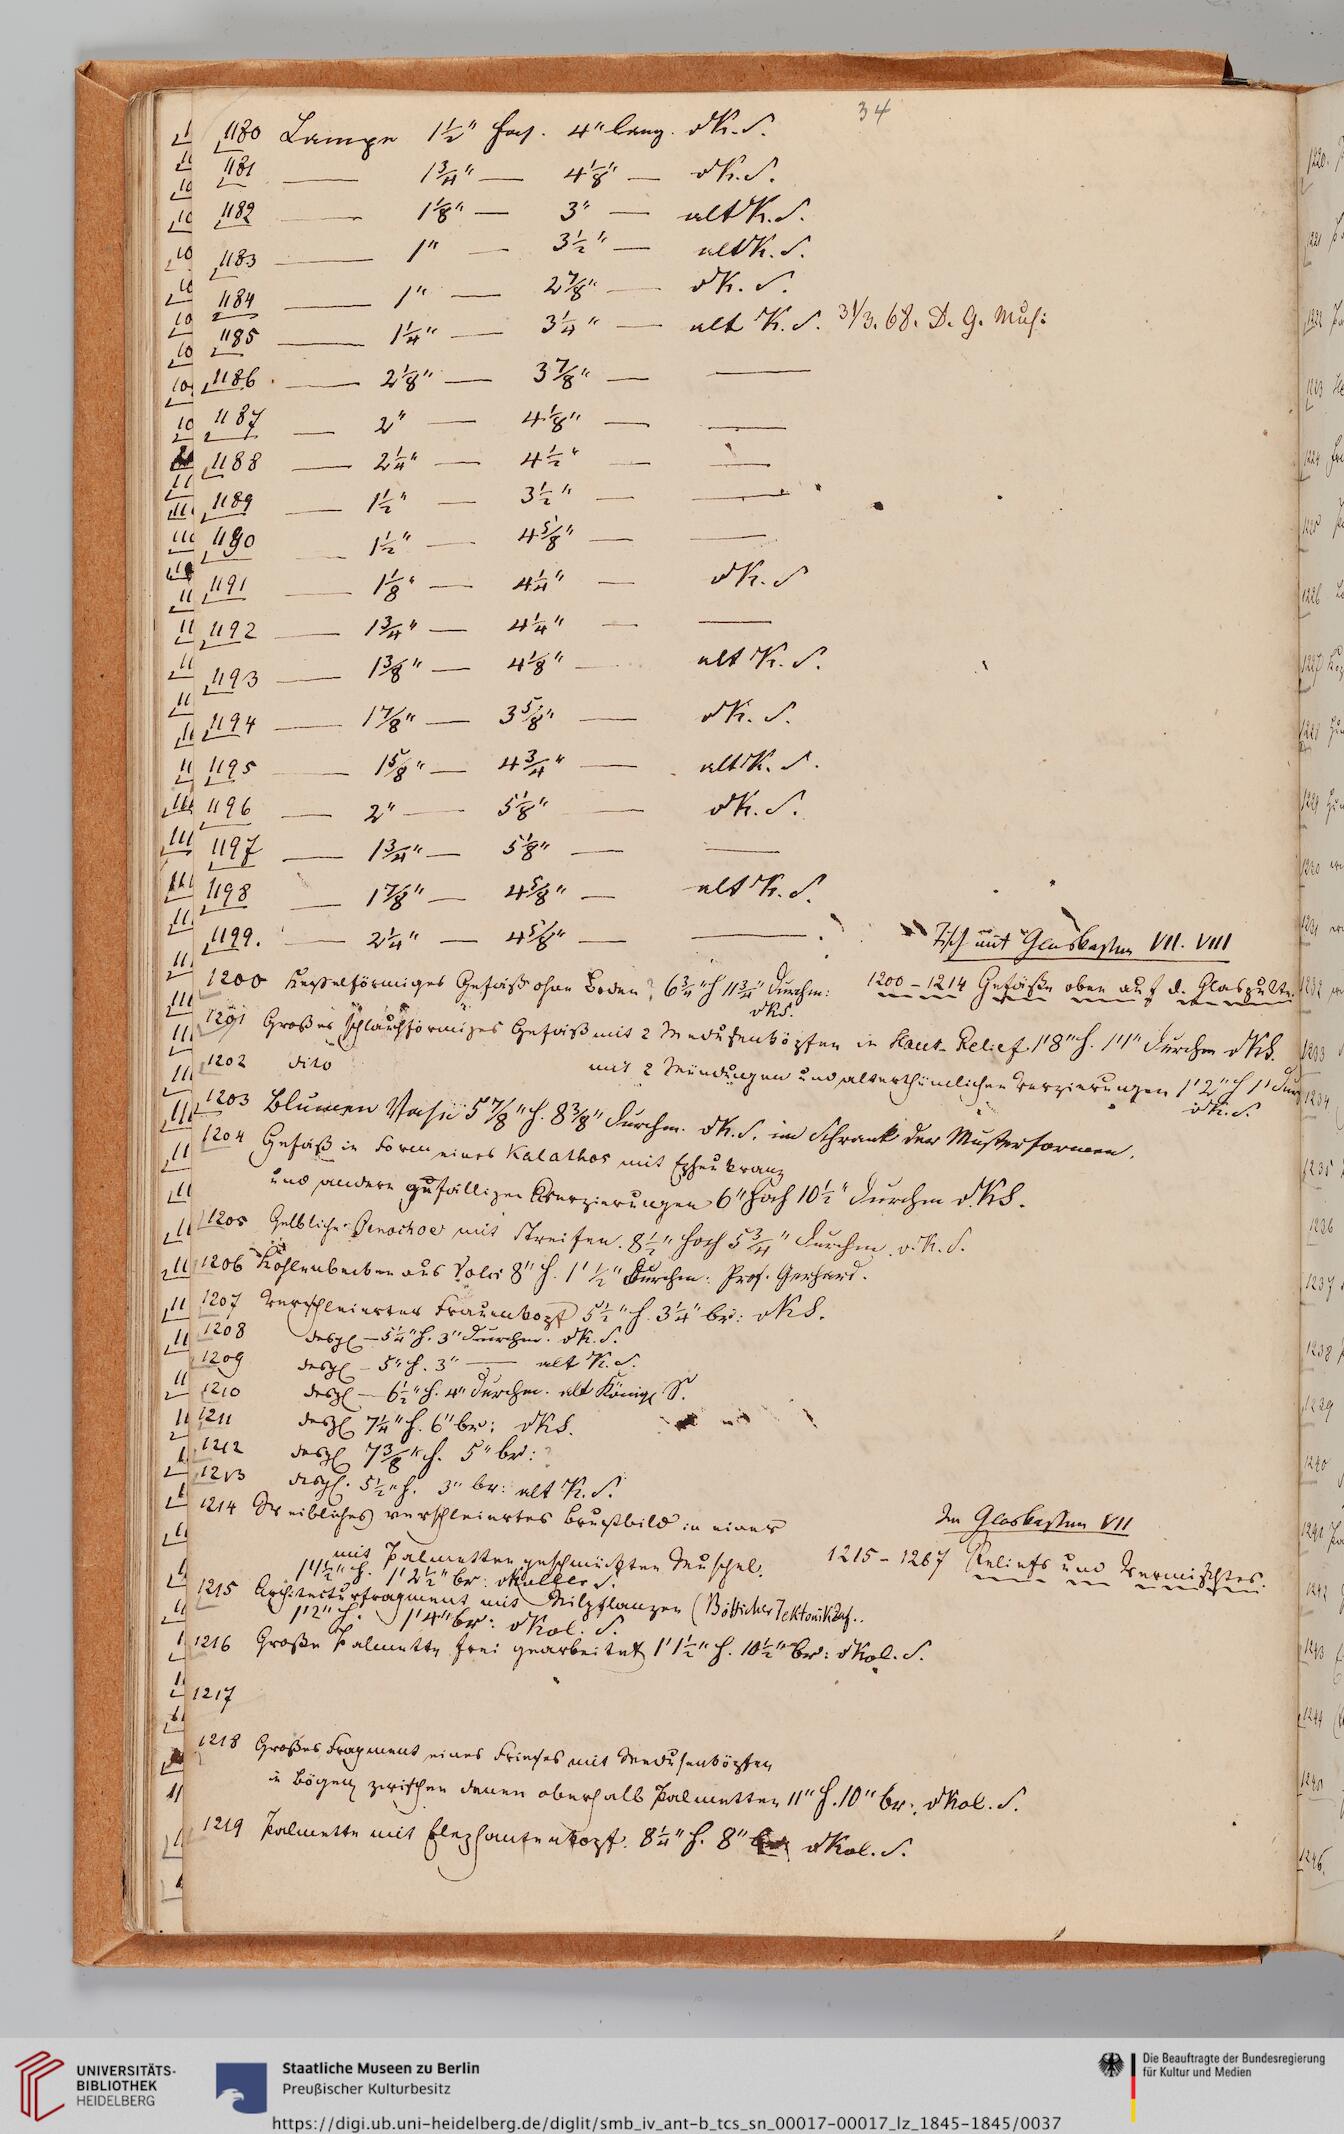 34
1180 Lampe 1½" hoch. 4" lang. dK. S.
1181 — 1¾" — 4⅛" — dK. S.
1182 — 1⅛" — 3" — alt K. S.
1183 — 1" — 3½" — alt K. S.
1184 — 1" — 2⅞" — dK. S.
1185 — 1¼" — 3¼" — alt K. S. 31/3. 68. D. G. Mus:
1186 — 2⅛" — 3⅞" — —
1187 — 2" — 4⅛" — —
1188 — 2¼" — 4½" — —
1189 — 1½" — 3½" — —
1190 — 1½" — 4⅝" — —
1191 — 1⅛" — 4¼" — dK. S
1192 — 1¾" — 4¼" — —
1193 — 1⅜" — 4⅛" — alt K. S.
1194 — 1⅞" — 3⅝" — dK. S.
1195 — 1⅝" — 4¾" — alt K. S.
1196 — 2" — 5⅛" — dK. S.
1197 — 1¾" — 5⅛" — —
1198 — 1⅞" — 4⅝" — alt K. S.
1199. — 2¼" — 4⅝" — —
Tisch mit Glaskasten VII. VIII
1200 Kesselförmiges Gefäß ohne Boden? 6¾" h 11¾" Durchm: dKS.
1200 – 1214 Gefäße oben auf d. Glaspulte.
1201 Großes schlauchförmiges Gefäß mit 2 Medusenköpfen in Haut-Relief. 1'8" h. 1'1" Durchm dKS.
1202 dito mit 2 Mündungen und alterthümlichen Verzierungen 1'2" h 1' Dur
dK. S.
1203 Blumen Vase 5⅞" h. 8⅜" Durchm. dK. S. im Schrank der Musterformen.
1204 Gefäß in Form eines Kalathos mit Epheukranz
und andern gefälligen Verzierungen 6" hoch 10½" Durchm dKS.
1205 Gelbliche Oenochoe mit Streifen. 8½" hoch 5¾" Durchm. dK. S.
1206 Kohlenbecken aus Volci 8" h. 1' ½" Durchm: Prof. Gerhard.
1207 Verschleierter Frauenkopf 5½" h. 3¼" br: dKS.
1208 desgl — 5¼" h. 3" Durchm. dK. S.
1209 desgl — 5" h. 3" — alt K. S.
1210 desgl — 6½" h. 4" Durchm. alt Königl S.
1211 desgl 7¼" h. 6" br: dKS.
1212 desgl 7⅜" h. 5" br: ?
1213 desgl. 5½" h. 3" br: alt K. S.
1214 Weibliches verschleiertes Brustbild in einer
mit Palmetten geschmückten Muschel.
1'1½" h. 1'2½" br: dKoller S.
Im Glaskasten VII
1215 – 1267 Reliefs und Vermischtes.
1215 Architecturfragment mit Nilpflanzen (Bötticher Tektonik
1'2" h. 1'4" br: dKol. S.
1216 Große Palmette frei gearbeitet 1'1½" h. 10½" br: dKol. S.
1217
1218 Großes Fragment eines Frieses mit Medusenköpfen
in Bögen zwischen denen oberhalb Palmetten 11" h. 10" br: dKol. S.
1219 Palmette mit Elephantenkopf. 8¼" h. 8" dKol. S.
UNIVERSITÄTS-
BIBLIOTHEK
HEIDELBERG
Staatliche Museen zu Berlin
Preußischer Kulturbesitz
Die Beauftragte der Bundesregierung
für Kultur und Medien
https://digi.ub.uni-heidelberg.de/diglit/smb_iv_ant-b_tcs_sn_00017-00017_lz_1845-1845/0037